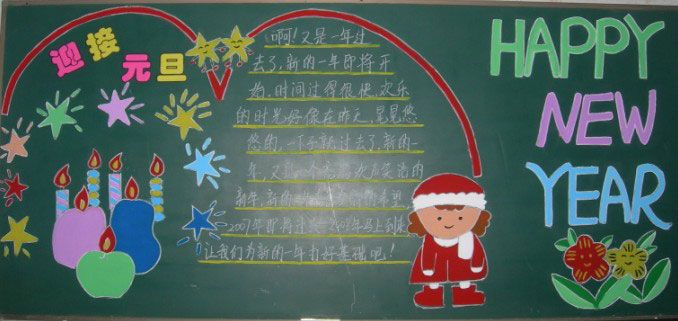 迎接元旦
啊!又是一年过
去了,新的一年即将开
始,时间过得很快,欢乐
的时光好像在昨天,晃晃悠
悠的,一下子就过去了,新的一
年,又是一个充满欢声笑语的
新年,新的
2007年即将过去,2008年马上到来
让我们为新的一年打好基础吧!
HAPPY
NEW
YEAR